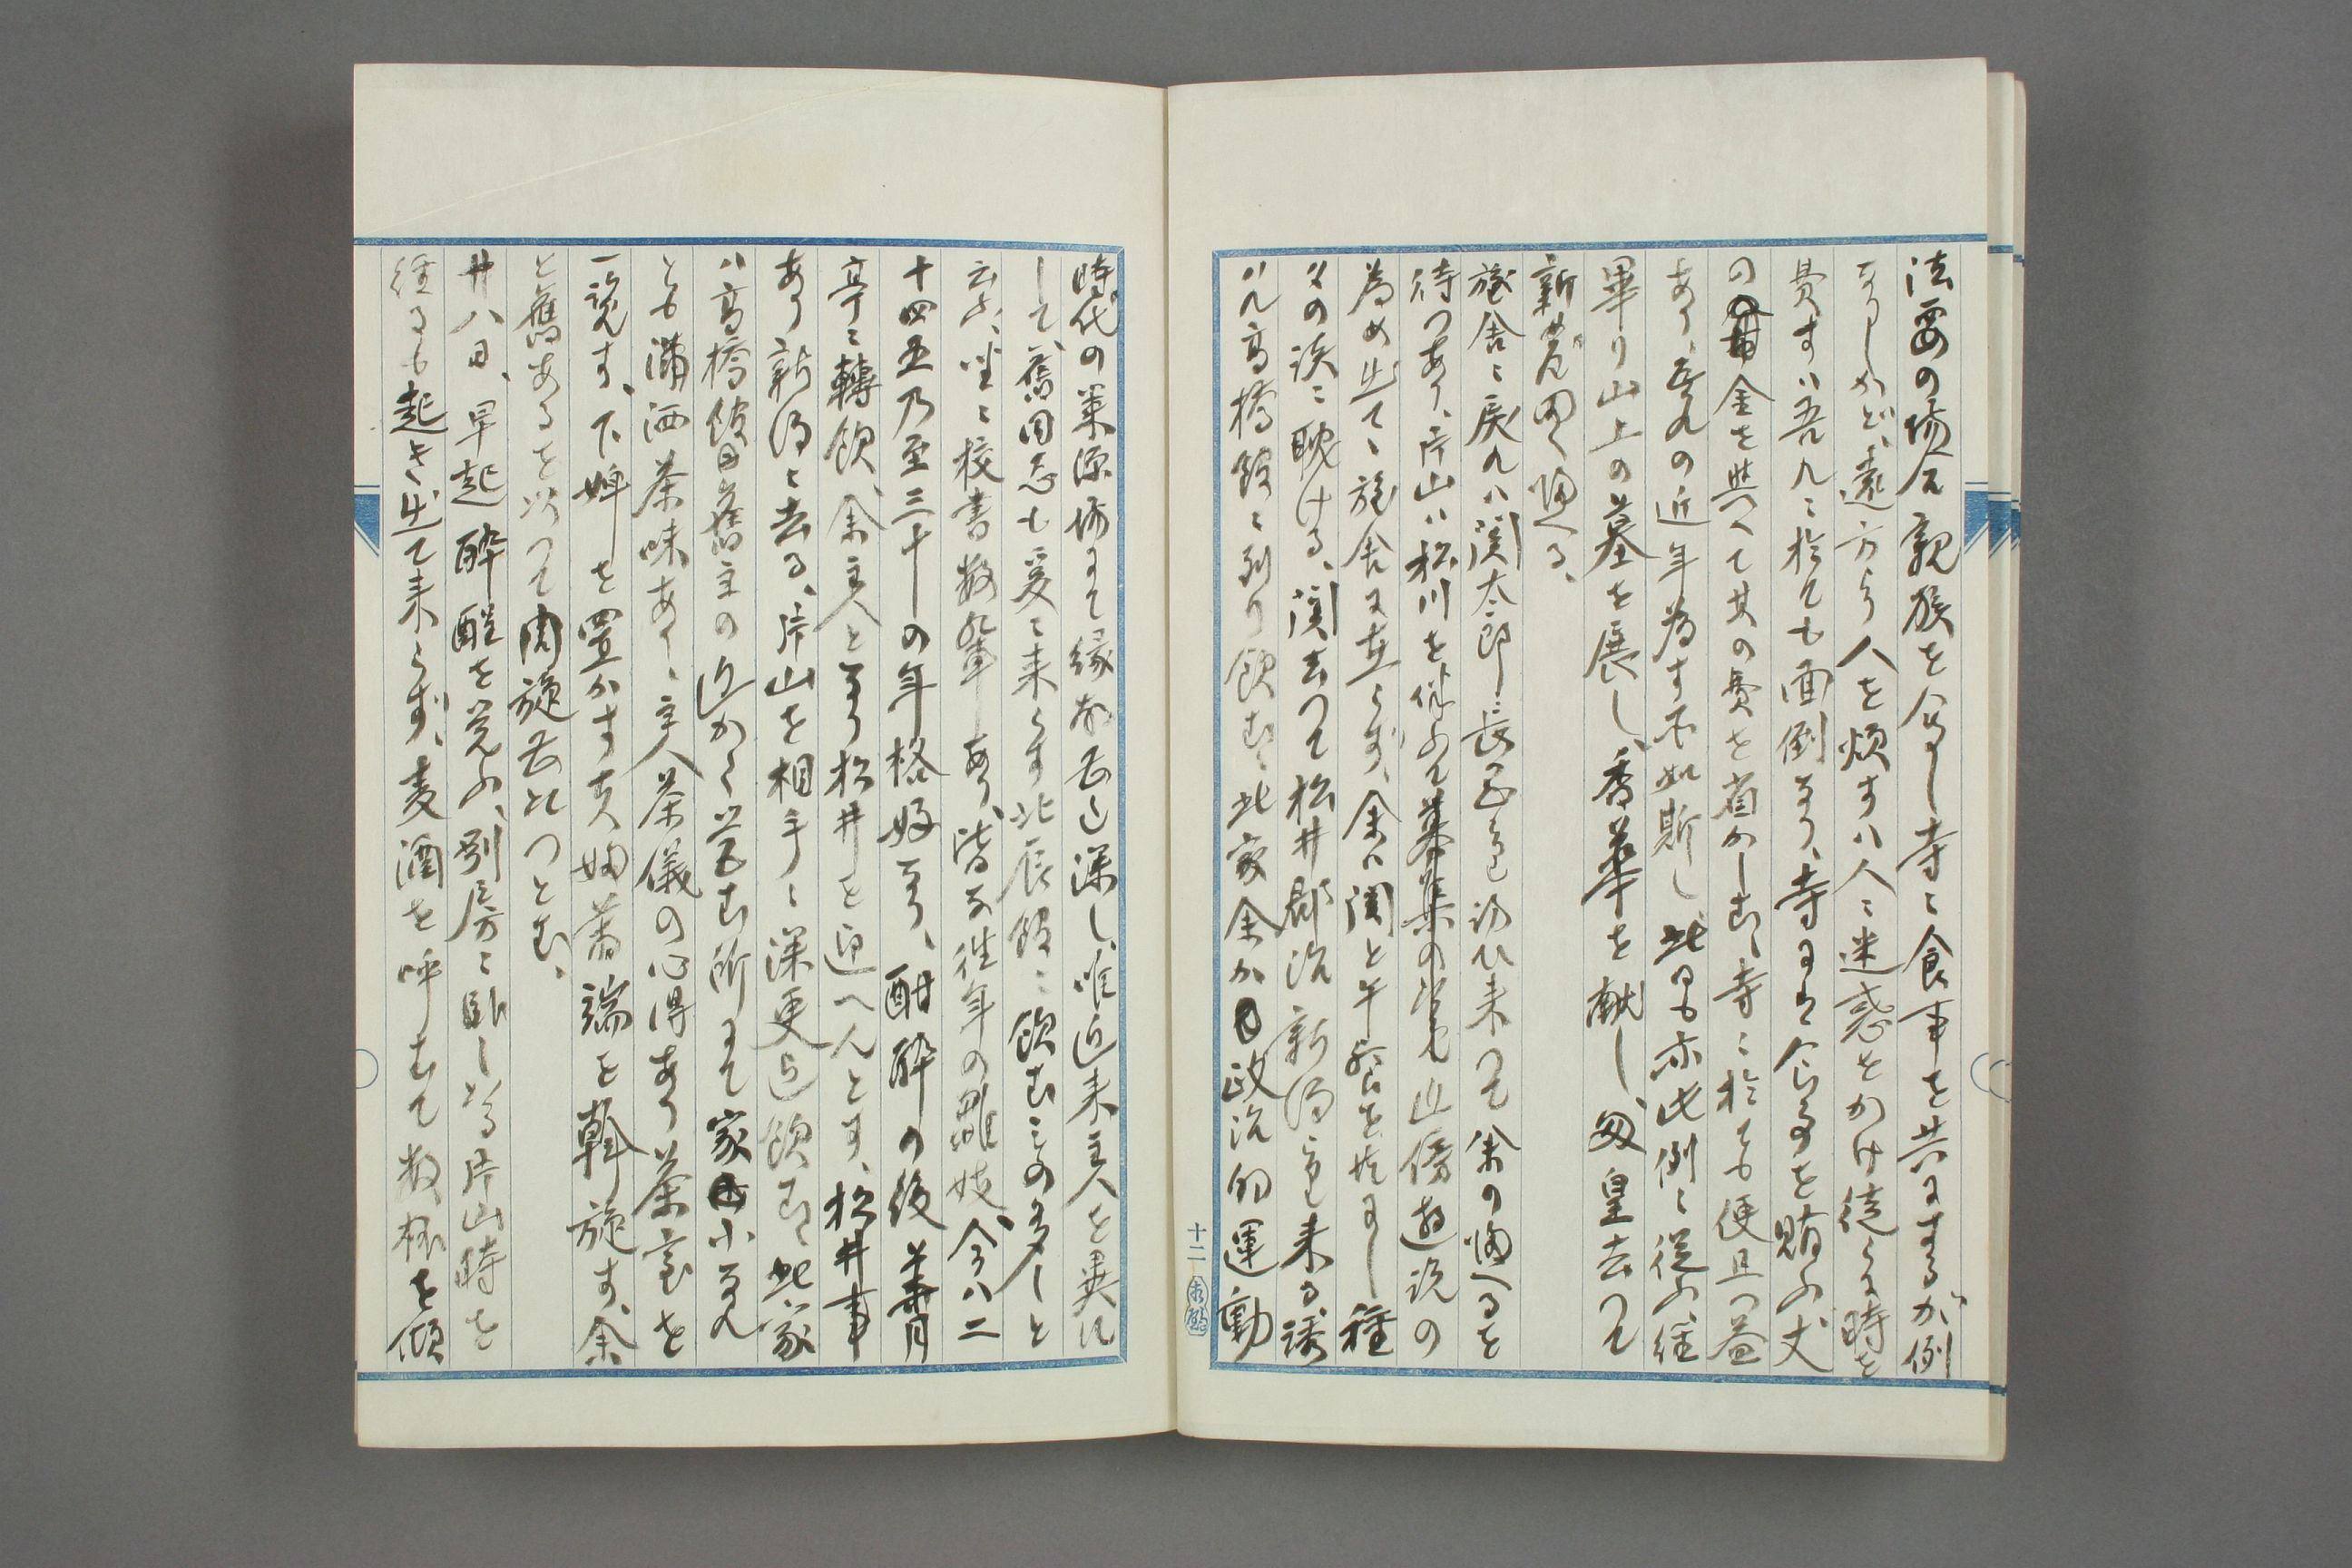 法要の場合親族を會し寺に食事を共にするが例
なりしかど、遠方より人を煩すハ人に迷惑をかけ徒らに時を
費すハ吾れに於ても面倒なり、寺にても食事を賄ふ丈
の金を與へて其の費を省かしむ、寺に於ても便且つ益
あり、吾れの近年為す所如斯し此日も亦此例に従ふ経
畢り山上の墓を展し、香華を献し、匆皇去つて
新潟に帰へる、
旅舎に戻れハ関太郎、長岡より訪ひ来つて余の帰へるを
待つあり、片山ハ松川を伴ふて募集の為め出傍遊説の
為め出でゝ旅舎に在らず、余ハ関と午餐を共にし種
々の談に耽ける、関去つて松井郡治新潟より来る誘
はれ高橋館に到り飲む、此家余か政治的運動
時代の策源場にて縁故尤も深し、唯近来主人を異に
して、舊同志も爰に来らす北辰館に飲むもの多しと
云ふ、坐に校書数輩あり、皆な往年の雛妓、今ハ二
十四五乃至三十の年格好なり、酣酔の後
亭に轉飲、余主人となり松井を迎へんとす、松井事
あり新潟を去る、片山を相手に深更迄飲む、此家
ハ高橋館舊主の近かく営む所にて家小なれ
とも瀟洒茶味あり、主人茶儀の心得あり茶室を
一覧す、下婢を置かす夫婦萬端を斡旋す、余
と舊あるを以つて周旋尤もつとむ、
廿八日、早起酔醒を覚ふ、別房に臥し居る片山時を
経るも起き出て来らず、麦酒を呼むて数杯を傾
十二